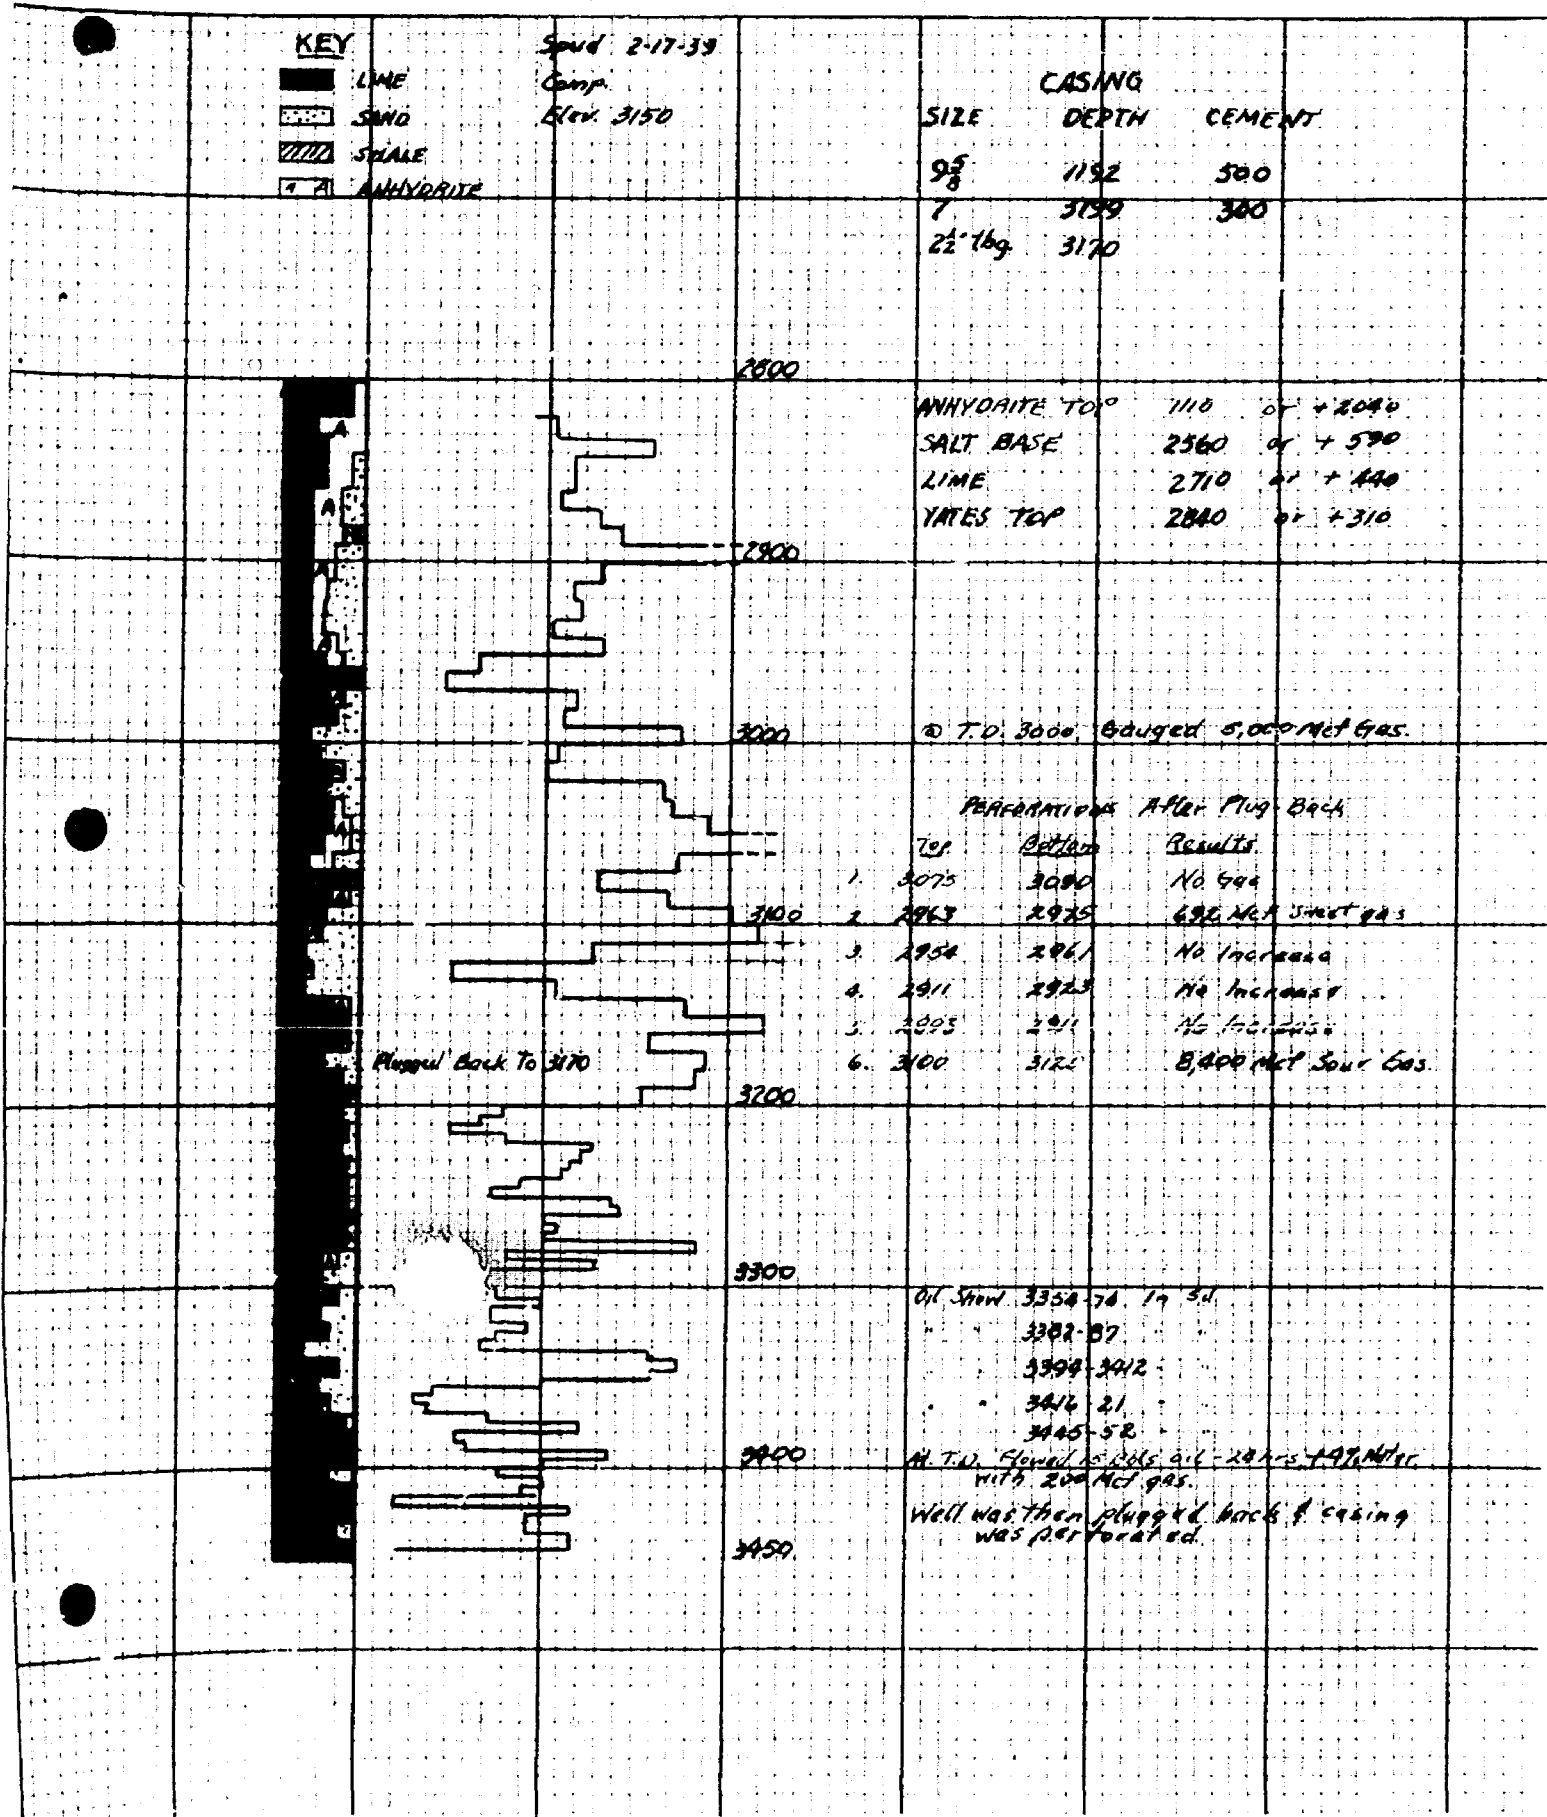 KEY
LIME
SAND
SHALE
A A ANHYDRITE
Spud 2-17-39
Comp.
Elev. 3150
CASING
SIZE DEPTH CEMENT
9 5/8 1192 500
7 3199 300
2 1/2" tbg. 3170
2800
ANHYDRITE TOP 1110 or + 2040
SALT BASE 2560 or + 590
LIME 2710 or + 440
YATES TOP 2840 or + 310
A
A
2900
A
A
3000
@ T.D. 3000, Gauged 5,000 Mcf Gas.
PERFORATIONS After Plug-Back
Top Bottom Results
1. 3075 3090 No Gas
3100
2. 2963 2975 692 Mcf Sweet gas
3. 2954 2961 No Increase
4. 2911 2923 No Increase
5. 2911 No Increase
6. 3100 8,400 Mcf Sour Gas.
Plugged Back To 3170
3200
A
3300
Oil Show 3354-74 in Sd.
" " 3382-87 "
" 3394-3412 "
" " 3416-21 "
3445-52
3400
At T.D. Flowed bbls oil - 24 hrs + 4% Water
with 200 Mcf gas.
Well was then plugged back & casing
was perforated.
3450